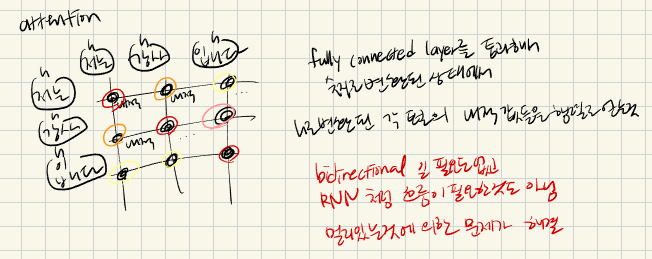 attention
h h h
저는 강사 입니다
h
저는
h
강사
h
입니다
내적 내적 ...
내적 ...
fully connected layer를 통과해서
숫자로 변환된 상태에서
변환된 각 토큰의 내적값들을 행렬로
bidirectional 일 필요도 없고
RNN 처럼 흐름이 필요한것도 아님
멀리있는것에 의한 문제가 해결